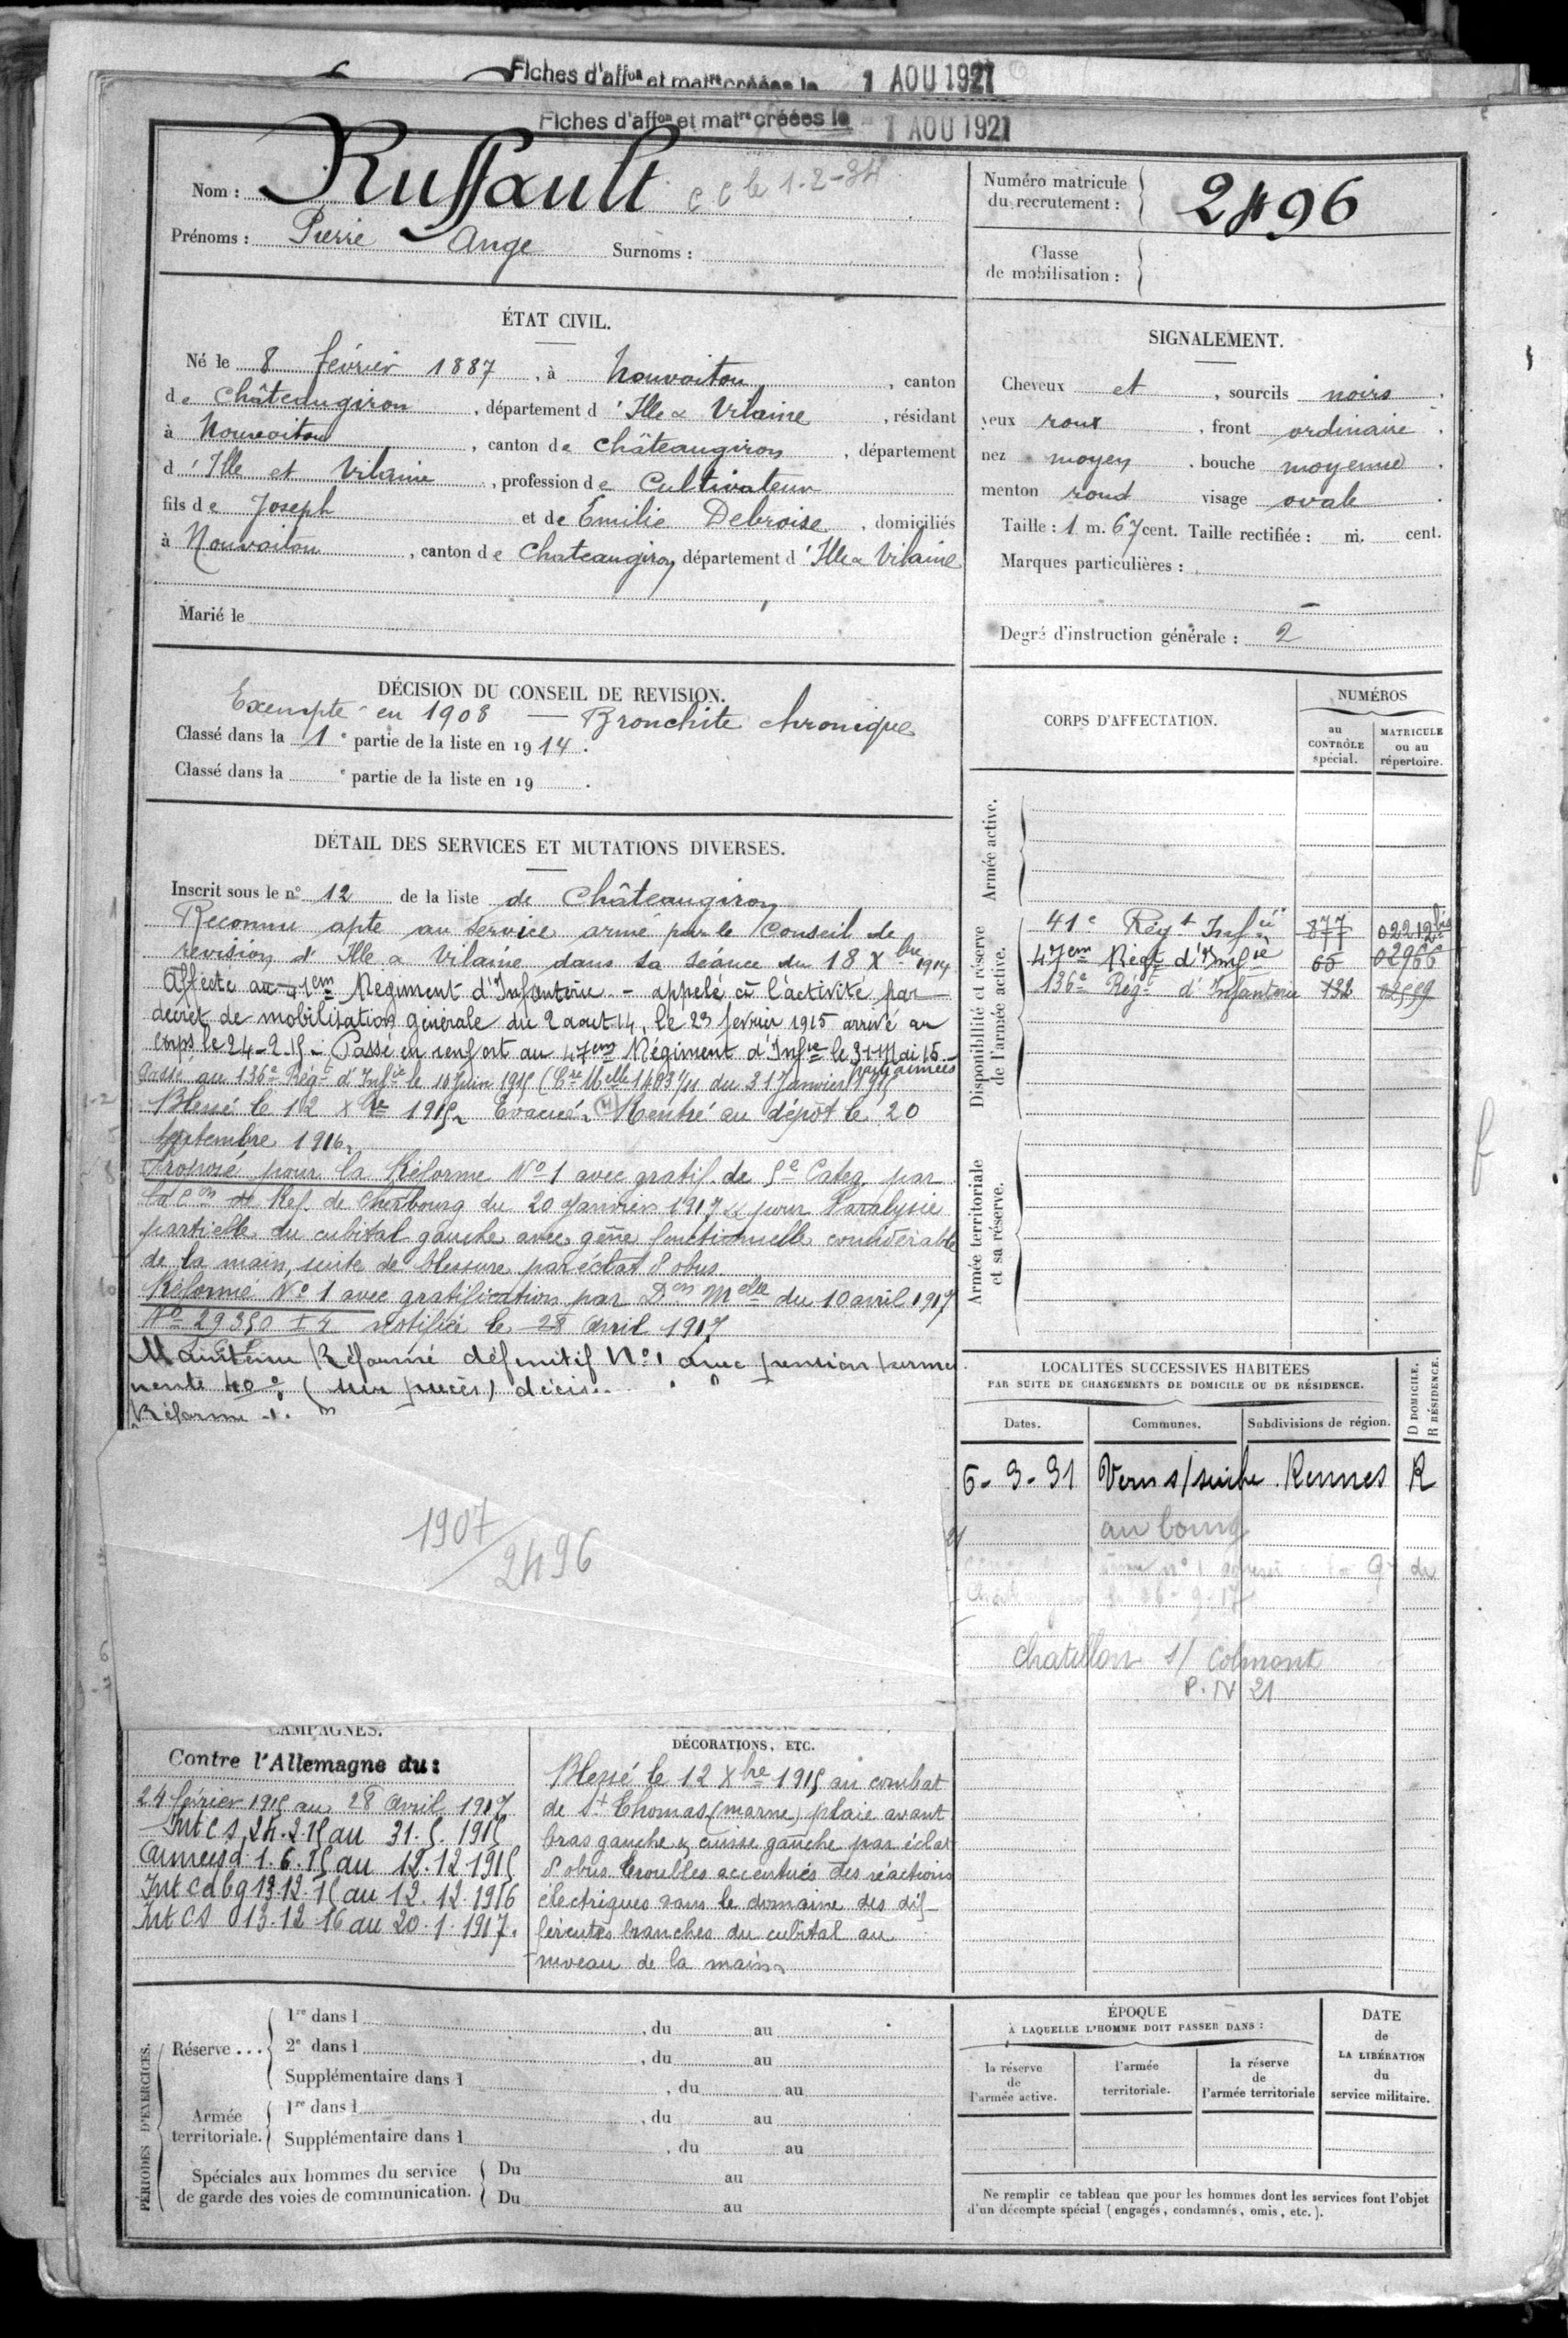 Fiches d'affon et matre créées le 1 AOU 1921
Fiches d'affon et matre créées le - 1 AOU 1921
Nom : Russault c c le 1-2-34
Prénoms : Pierre Ange Surnoms :
Numéro matricule du recrutement : 2496
Classe de mobilisation :
ÉTAT CIVIL.
Né le 8 février 1887, à Nouvoitou, canton
de Châteaugiron, département d'Ille & Vilaine, résidant
à Nouvoitou, canton de Châteaugiron, département
d'Ille et Vilaine, profession de Cultivateur
fils de Joseph et de Emilie Debroise, domiciliés
à Nouvoitou, canton de Chateaugiron département d'Ille & Vilaine
Marié le
SIGNALEMENT.
Cheveux et, sourcils noirs.
yeux roux, front ordinaire.
nez moyen, bouche moyenne.
menton rond visage ovale.
Taille : 1 m. 67 cent. Taille rectifiée : m. cent.
Marques particulières :
Degré d'instruction générale : 2
DÉCISION DU CONSEIL DE REVISION.
Exempté en 1908 — Bronchite chronique
Classé dans la 1e partie de la liste en 1914.
Classé dans la e partie de la liste en 19 .
DÉTAIL DES SERVICES ET MUTATIONS DIVERSES.
Inscrit sous le n° 12 de la liste de Châteaugiron
Reconnu apte au service armé par le Conseil de
revision d'Ille & Vilaine dans sa séance du 18 Xbre 1914
Affecté au 41em Régiment d'Infanterie. - appelé à l'activité par
décret de mobilisation générale du 2 aout 14, le 23 fevrier 1915 arrivé au
corps le 24-2-15 - Passé en renfort au 47em Régiment d'Infie le 31 Mai 15 -
Passé au 136e Régt d'Infie le 10 Juin 1915 (Cre Melle 1403 du 31 Janvier 1915
Blessé le 12 Xbre 1915. Evacué. Rentré au dépôt le 20
septembre 1916.
Proposé pour la Réforme N° 1 avec gratif. de 5e Categ. par
la Con de Ref. de Cherbourg du 20 Janvier 1917 pour Paralysie
partielle du cubital gauche avec gêne fonctionnelle considérable
de la main, suite de blessure par éclat d'obus.
Réformé N° 1 avec gratification par Don Melle du 10 avril 1917
N° 29350 notifiée le 28 Avril 1917
Maintenu Réformé définitif N° 1 avec pension perma
nente 40% décis
Réforme
1907
2496
CORPS D'AFFECTATION.
NUMÉROS
au CONTRÔLE spécial.
MATRICULE ou au répertoire.
Armée active.
Disponibilité et réserve de l'armée active.
41e Régt Infie 877 02212bis
47em Régt d'Infie 65 02966
136e Régt d'Infanterie 132 02559
Armée territoriale et sa réserve.
LOCALITÉS SUCCESSIVES HABITÉES
PAR SUITE DE CHANGEMENTS DE DOMICILE OU DE RÉSIDENCE.
Dates. Communes. Subdivisions de région. D DOMICILE. R RÉSIDENCE.
6-3-31 Vern s/seiche Rennes R
au bourg
Chatillon s/ Colmont
P. N 21
CAMPAGNES.
Contre l'Allemagne du :
24 février 1915 au 28 Avril 1917
Int CS, 24.2.15 au 31.5.1915
armées d 1.6.15 au 12.12.1915
Int cdbg 13.12.15 au 12.12.1916
Int CS 13.12 16 au 20.1.1917.
DÉCORATIONS, ETC.
Blessé le 12 Xbre 1915 au combat
de St Thomas (marne) plaie avant
bras gauche & cuisse gauche par éclat
d'obus troubles accentués des réactions
électriques dans le domaine des dif-
férentes branches du cubital au
niveau de la main.
PÉRIODES D'EXERCICES.
Réserve...
1re dans l , du au
2e dans l , du au
Supplémentaire dans l , du au
Armée territoriale.
1re dans l , du au
Supplémentaire dans l , du au
Spéciales aux hommes du service de garde des voies de communication.
Du au
Du au
ÉPOQUE
À LAQUELLE L'HOMME DOIT PASSER DANS :
la réserve de l'armée active.
l'armée territoriale.
la réserve de l'armée territoriale
DATE de LA LIBÉRATION du service militaire.
Ne remplir ce tableau que pour les hommes dont les services font l'objet
d'un décompte spécial (engagés, condamnés, omis, etc.).